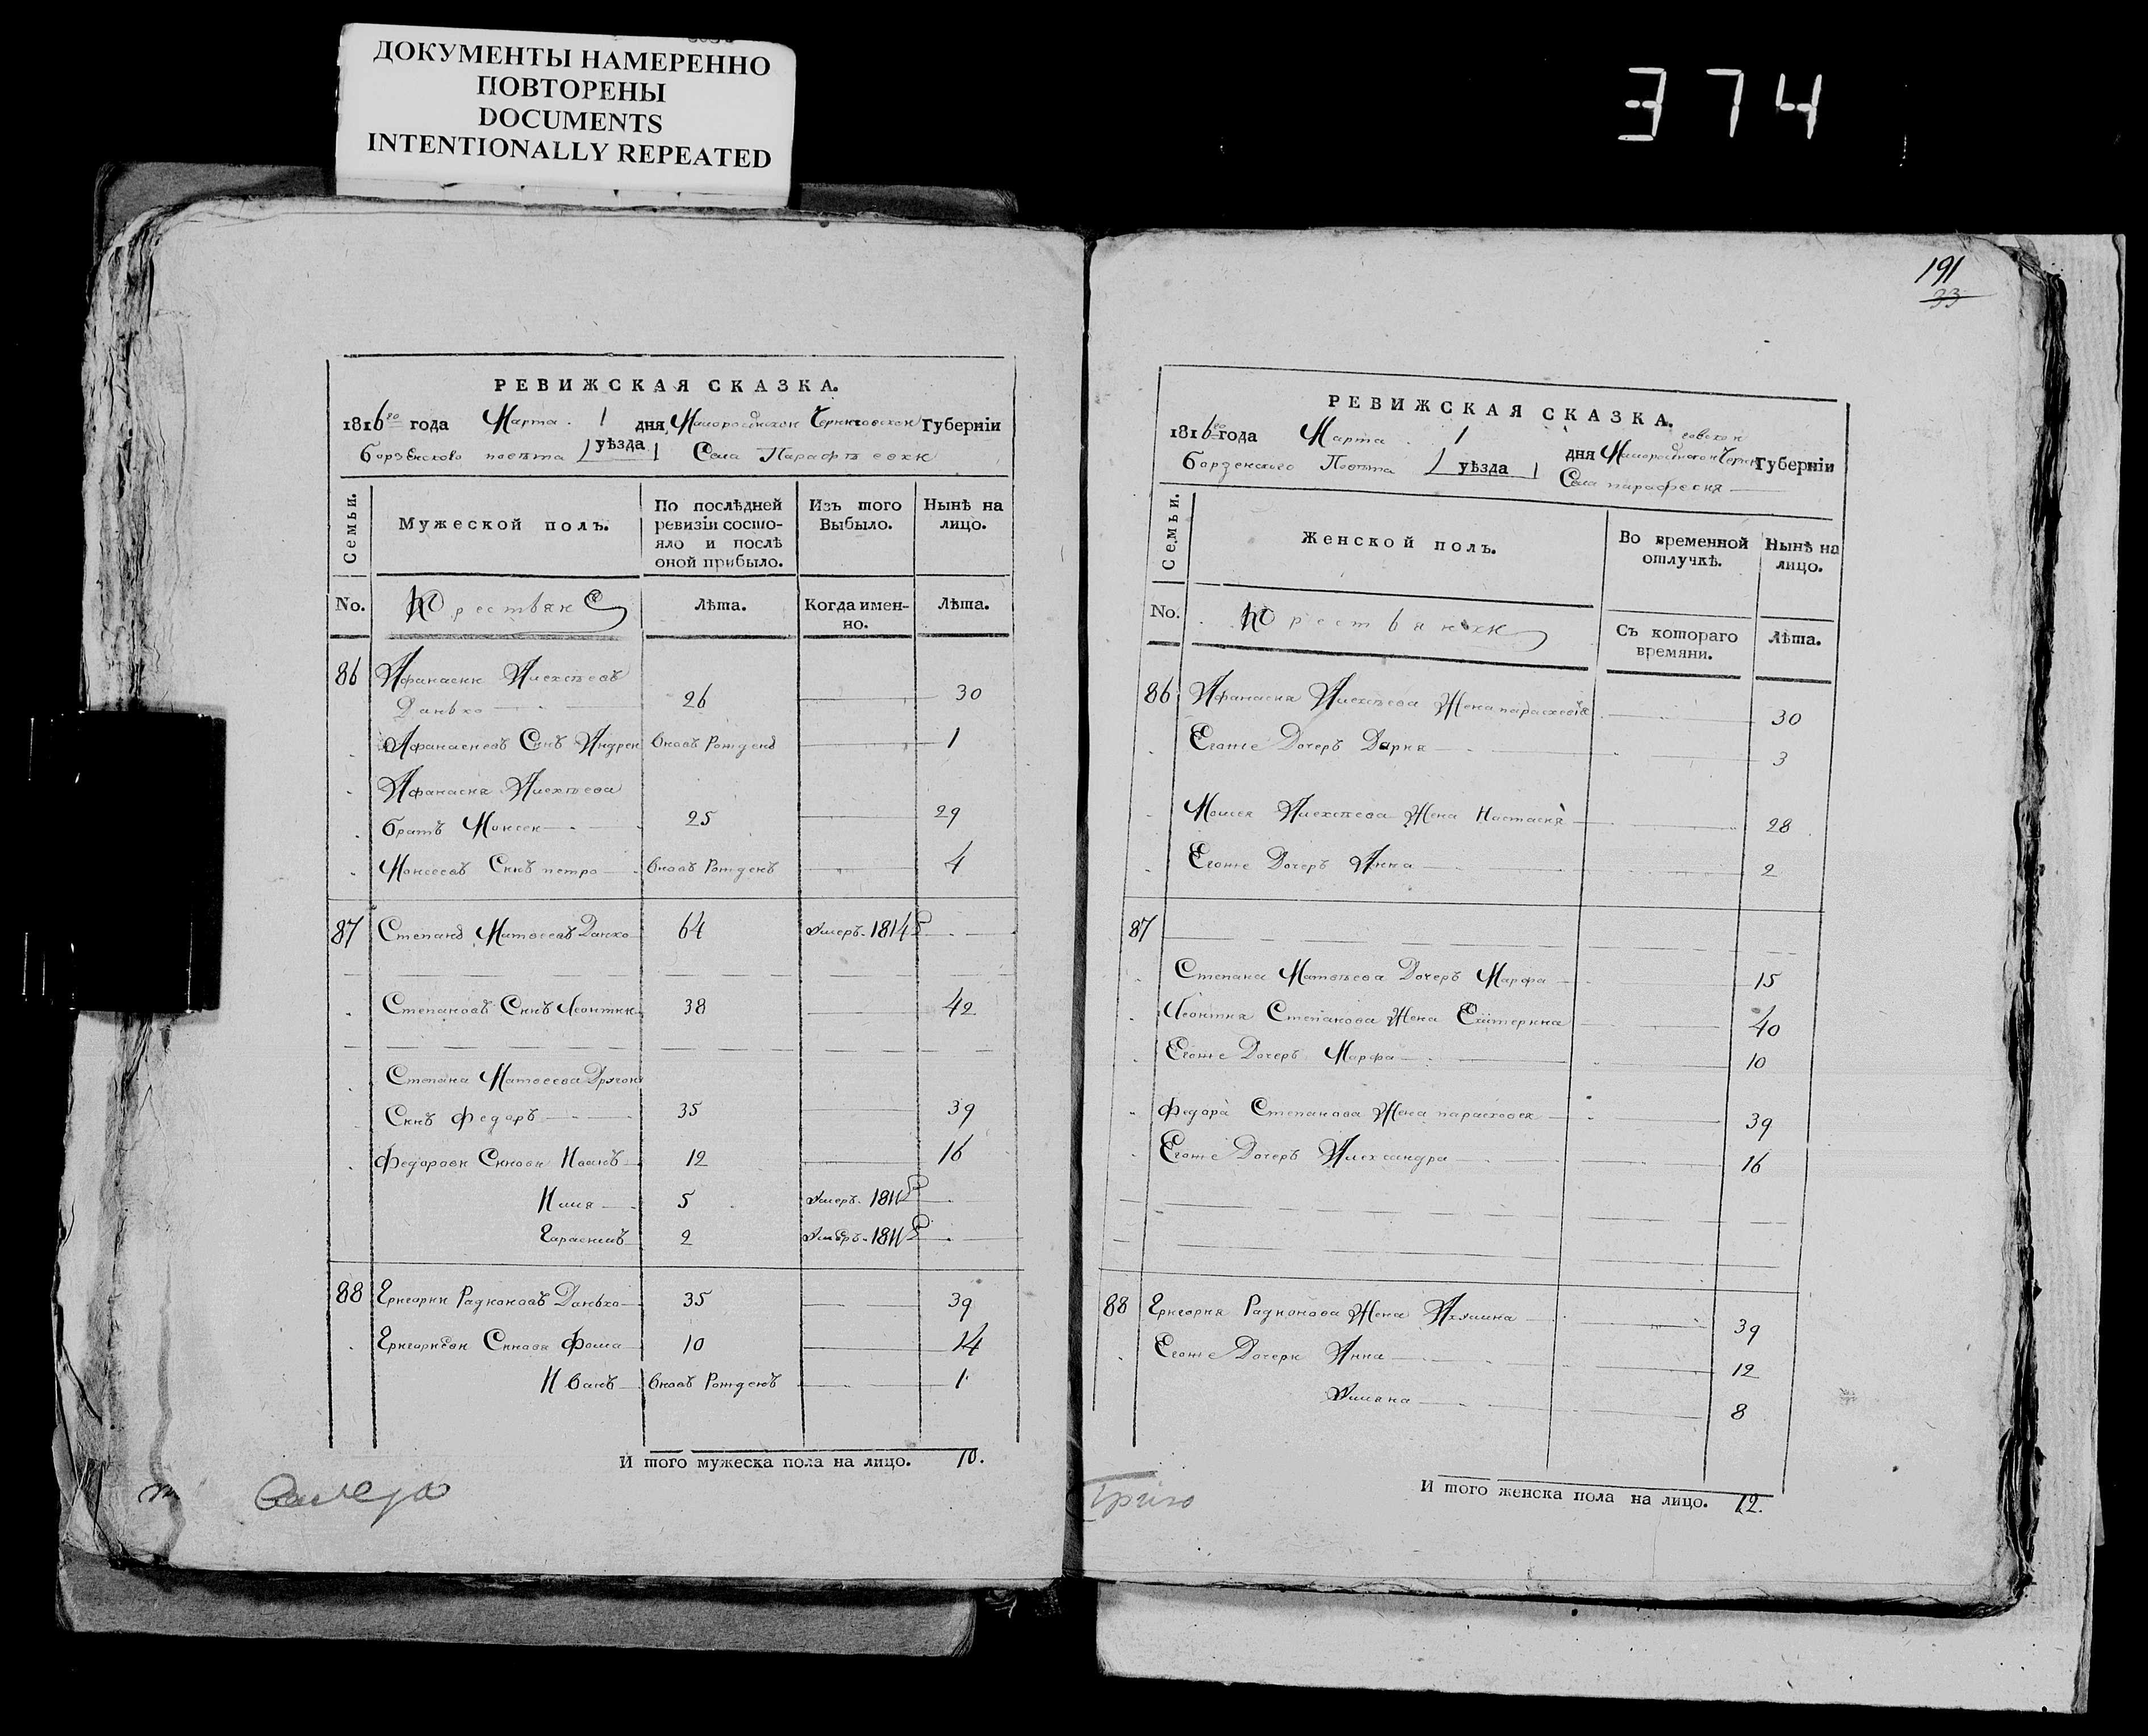 ДОКУМЕНТЫ НАМЕРЕННО
ПОВТОРЕНЫ
DOCUMENTS
INTENTIONALLY REPEATED
374
РЕВИЖСКАЯ СКАЗКА.
1816го года Марта 1 дня Малоросійской Черниговской Губерніи
Борзенского повѣта уѣзда Села Парафѣевки
Семьи.
Мужеской полъ.
По послѣдней ревизіи состояло и послѣ оной прибыло.
Изъ того Выбыло.
Нынѣ на лицо.
No.
Крестьяне
Лѣта.
Когда именно.
Лѣта.
86 Афанасий Алексѣевъ
Данько 26 30
Афанасиевъ Сынъ Андрей вновь Рожденъ 1
Афанасия Алексѣева
братъ Моисей 25 29
Моисеевъ Сынъ петро вновь Рожденъ 4
87 Степанъ Матвеевъ Данко 64 Умеръ 1814
Степановъ Сынъ Леонтий 38 42
Степана Матвеева Другой
Сынъ Федоръ 35 39
Федоровы Сыновя Иванъ 12 16
Илия 5 Умеръ 1811
Герасимъ 2 Умеръ 1811
88 Григорий Радионовъ Данько 35 39
Григориевы Сыновя Фома 10 14
Иванъ вновь Рожденъ 1
И того мужеска пола на лицо. 10.
191
33
РЕВИЖСКАЯ СКАЗКА.
1816го года Марта 1 дня Малоросійской Черниговской Губерніи
Борзенского Повѣта уѣзда Села парафеевки
Семьи.
Женской полъ.
Во временной отлучкѣ.
Нынѣ на лицо.
No.
Крестьянки
Съ котораго времяни.
Лѣта.
86 Афанасия Алексѣева Жена параскевия 30
Егоже Дочеръ Дария 3
Моисея Алексѣева Жена Настасия 28
Егоже Дочеръ Анна 2
87
Степана Матвѣева Дочеръ Марфа 15
Леонтия Степанова Жена Екатерина 40
Егоже Дочеръ Марфа 10
Федора Степанова Жена параскевея 39
Егоже Дочеръ Александра 16
88 Григория Радионова Жена Акулина 39
Егоже Дочери Анна 12
Улияна 8
И того женска пола на лицо. 12.
Григо